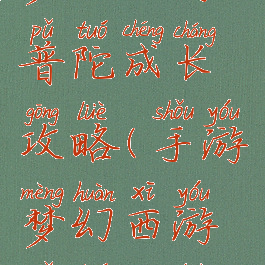 pǔ tuó chéng cháng
普陀成长
gōng lüè shǒu yóu
攻略(手游
mèng huàn xī yóu
梦幻西游